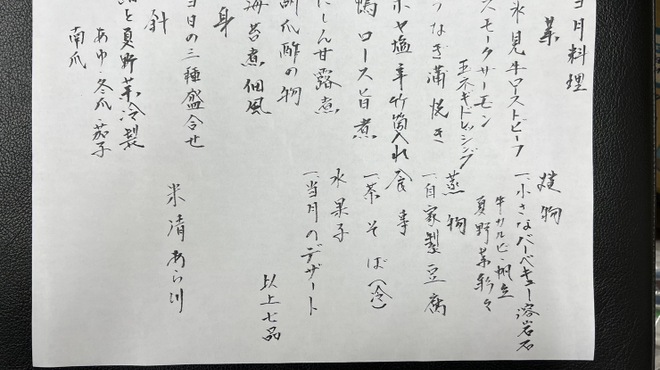 当月料理
菜
氷見牛ローストビーフ
スモークサーモン
玉ネギドレッシング
うなぎ蒲焼き
ホヤ塩辛竹筒入れ
鴨ロース旨煮
にしん甘露煮
酢の物
海苔煮佃風
身
当日の三種盛合せ
斗
と夏野菜冷製
あゆ・冬瓜・茄子
南瓜
焼物
一、小さなバーベキュー溶岩石
牛カルビ・帆立
夏野菜彩々
蒸物
一、自家製豆腐
食事
一、茶そば(冷)
水果子
一、当月のデザート
以上七品
米清あら川